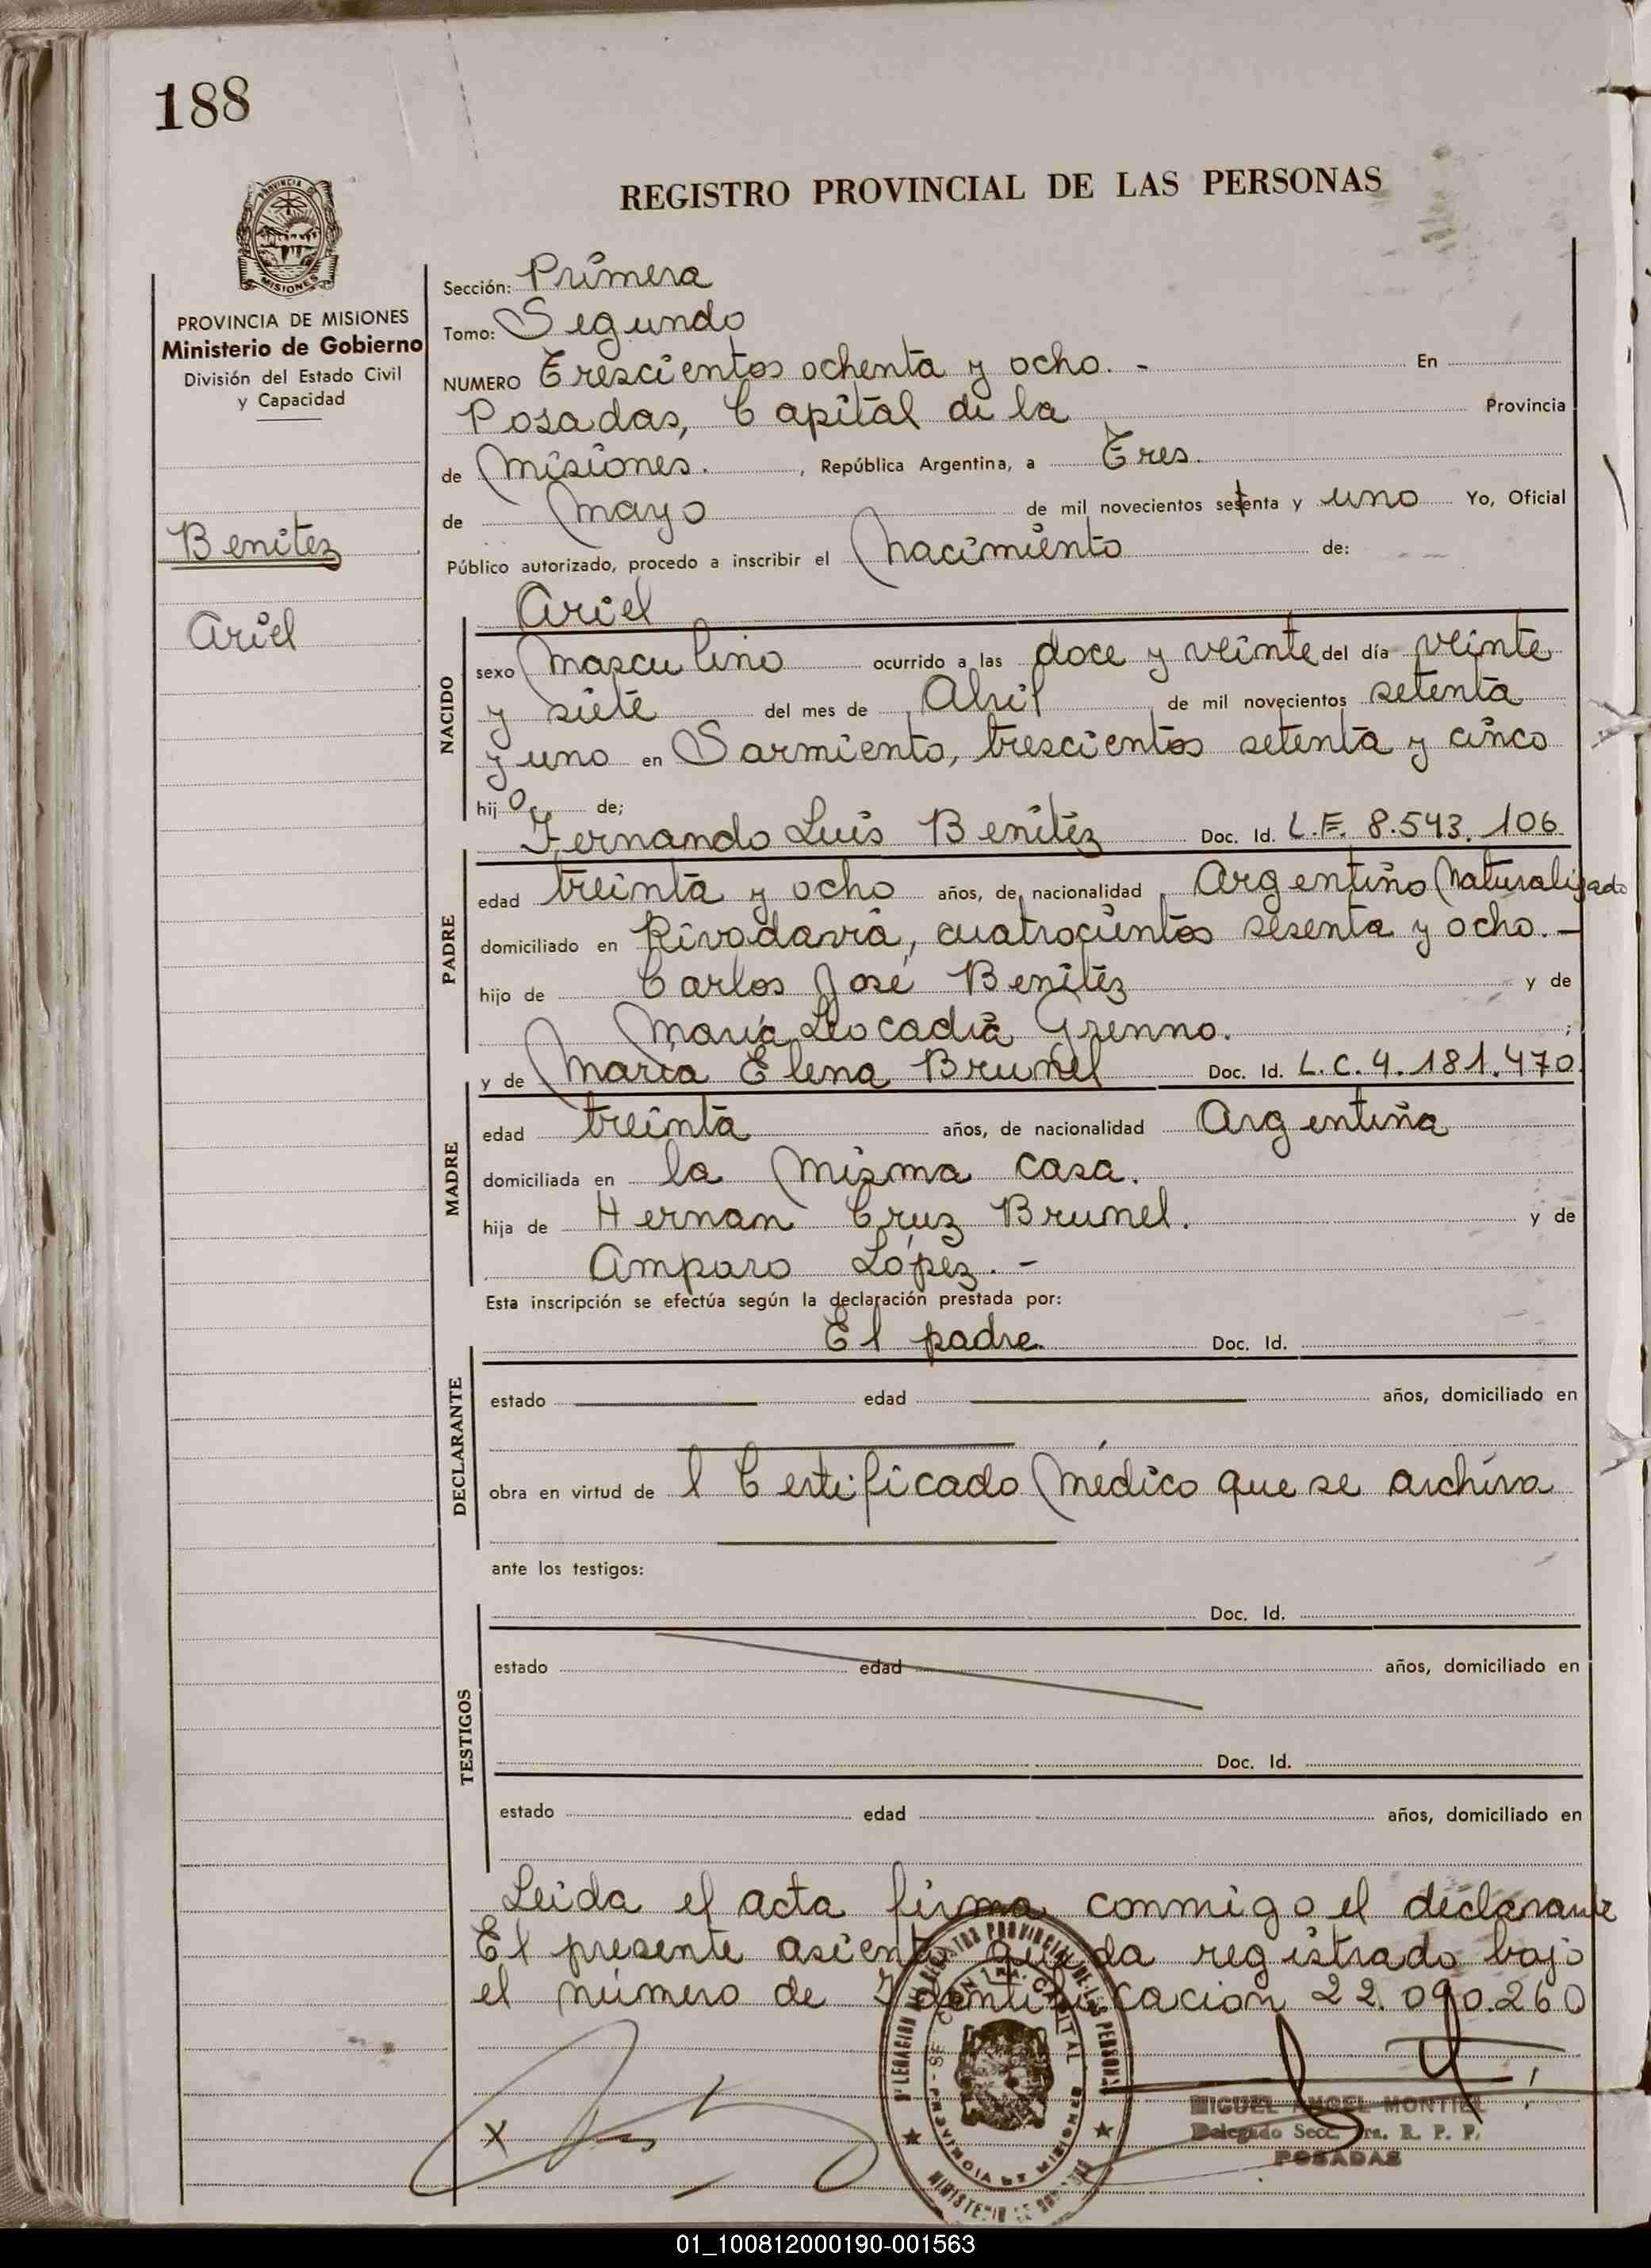 188
PROVINCIA DE
MISIONES
REGISTRO PROVINCIAL DE LAS PERSONAS
PROVINCIA DE MISIONES
Ministerio de Gobierno
División del Estado Civil
y Capacidad
Benitez
Ariel
Sección: Primera
Tomo: Segundo
NUMERO Trescientos ochenta y ocho. - En
Posadas, Capital de la Provincia
de Misiones. , República Argentina, a Tres.
de Mayo de mil novecientos setenta y uno Yo, Oficial
Público autorizado, procedo a inscribir el Nacimiento de:
Ariel
NACIDO
sexo Masculino ocurrido a las doce y veinte del día veinte
y siete del mes de Abril de mil novecientos setenta
y uno en Sarmiento, trescientos setenta y cinco
hij o de;
Fernando Luis Benitez Doc. Id. L.E. 8.543.106
PADRE
edad treinta y ocho años, de nacionalidad Argentino Naturalizado
domiciliado en Rivadavia, cuatrocientos sesenta y ocho. -
hijo de Carlos José Benitez y de
María Leocadia Grenno. ;
y de María Elena Brunel Doc. Id. L.C. 4.181.470
MADRE
edad treinta años, de nacionalidad Argentina
domiciliada en la Misma casa.
hija de Hernan Cruz Brunel. y de
Amparo López. -
Esta inscripción se efectúa según la declaración prestada por:
El padre. Doc. Id.
DECLARANTE
estado edad años, domiciliado en
obra en virtud de l Certificado Médico que se archiva
ante los testigos:
Doc. Id.
TESTIGOS
estado edad años, domiciliado en
Doc. Id.
estado edad años, domiciliado en
Leida el acta firma conmigo el declarante
El presente asiento queda registrado bajo
el número de Identificacion 22.090.260
X
MIGUEL ANGEL MONTIEL
Delegado Secc. 1ra. R. P. P.
POSADAS
01_100812000190-001563